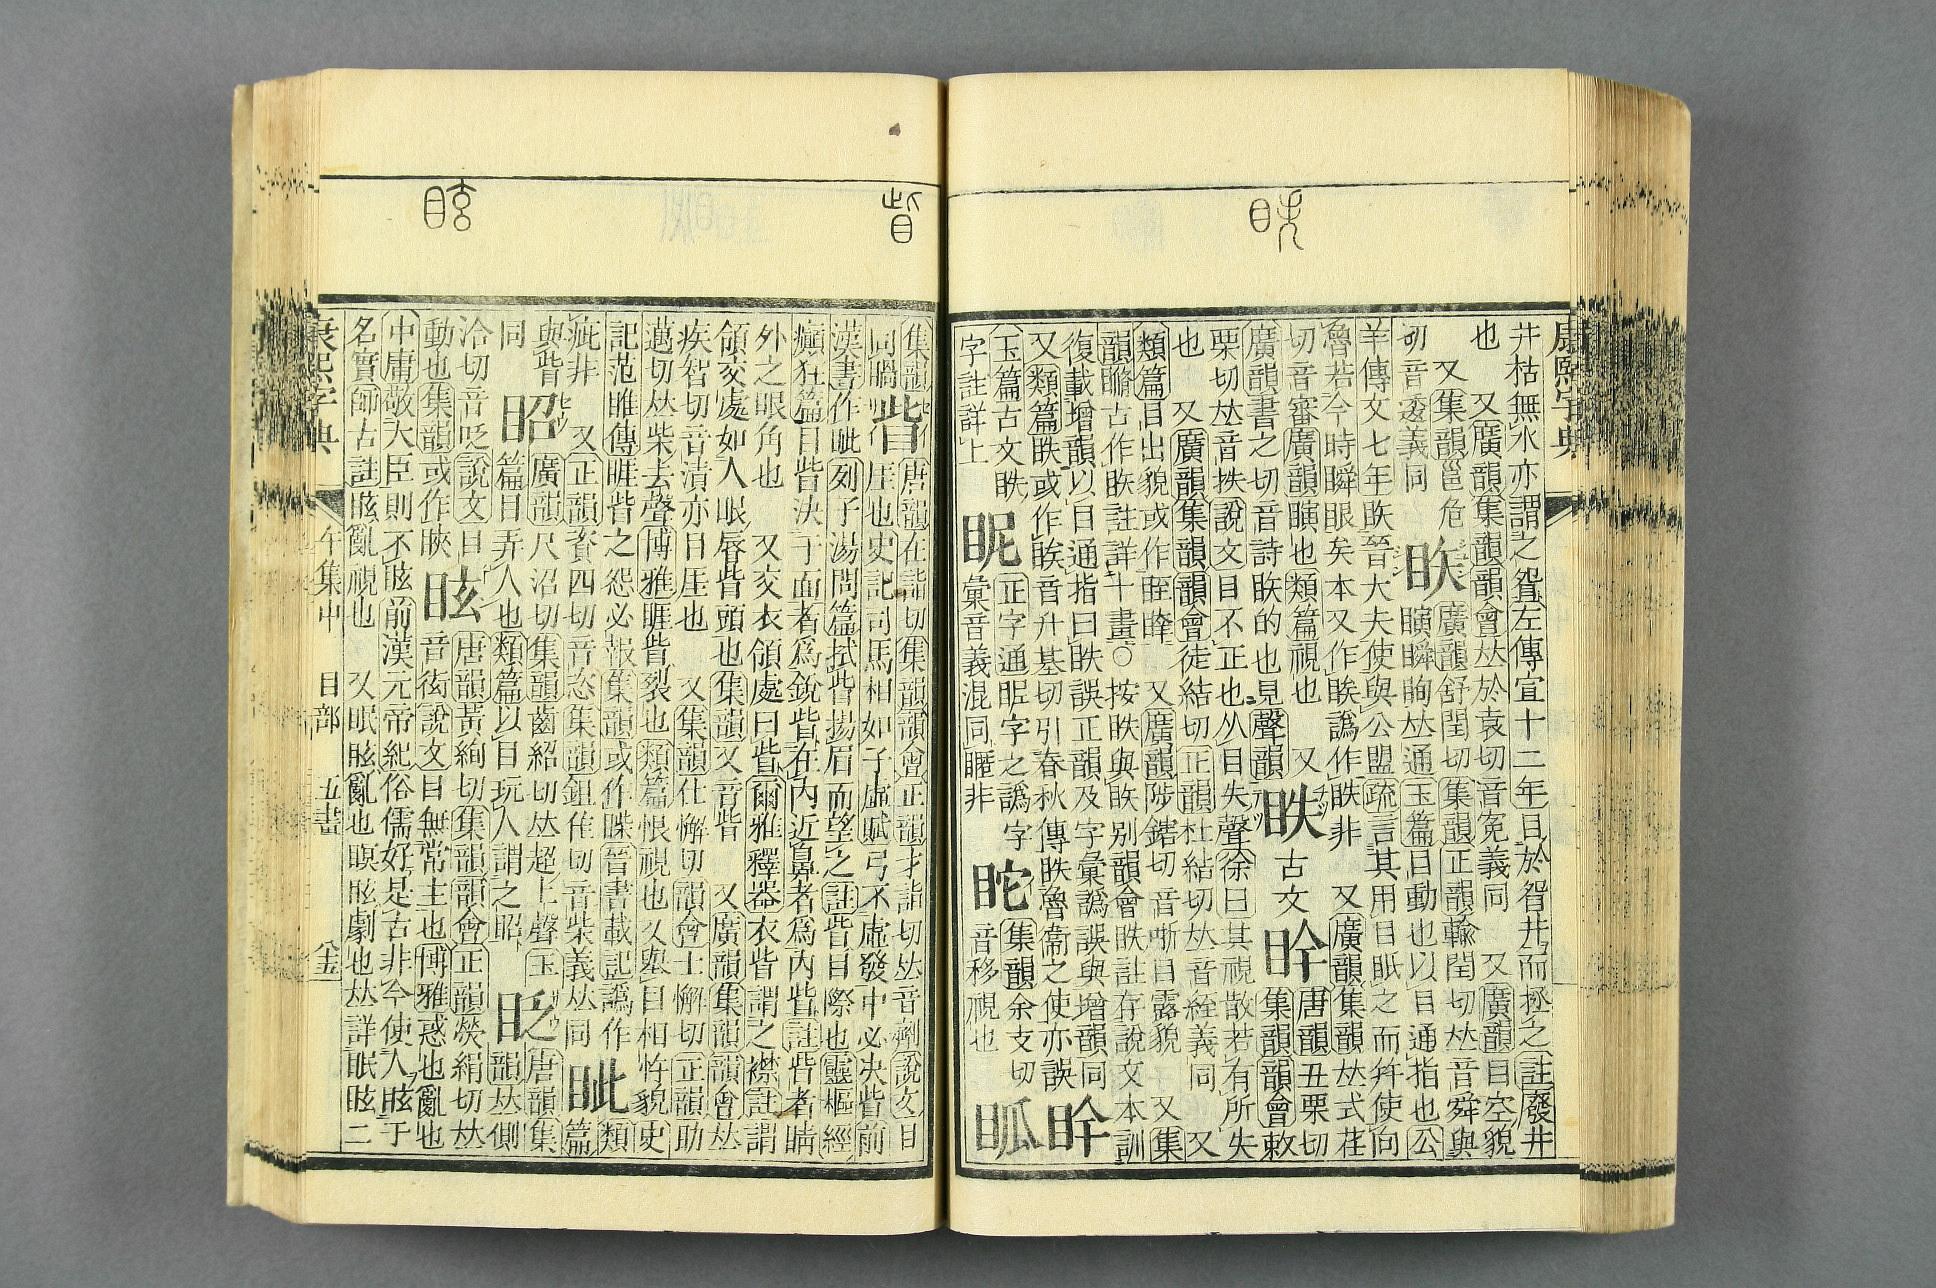 眣
眥
眩
康熙字典
井枯無水亦謂之眢左傳宣十二年目於眢井而拯之註廢井
也 又廣韻集韻韻會𠀤於袁切音冤義同 又廣韻目空貌
又集韻邕危
切音逶義同
廣韻舒閏切集韻正韻輸閏切𠀤音舜與
瞚瞬瞤𠀤通玉篇目動也以目通指也公
羊傳文七年眣晉大夫使與公盟疏言其用目眂之而幷使向
魯若今時瞬眼矣本又作䀢譌作眣非 又廣韻集韻𠀤式荏
切音審廣韻瞋也類篇視也 又
廣韻書之切音詩眣的也見聲韻
眣
古文
唐韻丑栗切
集韻韻會敕
栗切𠀤音抶說文目不正也从目失聲徐曰其視散若有所失
也 又廣韻集韻韻會徒結切正韻杜結切𠀤音絰義同 又
類篇目出貌或作眰 又廣韻陟鎋切音哳目露貌 又集
韻瞻古作眣註詳十畫○按眣與䀢別韻會眣註存說文本訓
復載增韻以目通指曰眣誤正韻及字彙譌誤與增韻同
又類篇眣或作䀢音升基切引春秋傳眣魯衞之使亦誤
玉篇古文眣
字註詳上
眤
正字通昵字之譌字
彙音義混同睚非
集韻余支切
音移視也
眥
集韻
同瞷
唐韻在詣切集韻韻會正韻才詣切𠀤音劑說文目
厓也史記司馬相如子虛賦弓不虛發中必決眥前
漢書作眦列子湯問篇拭眥揚眉而望之註眥目際也靈樞經
癲狂篇目眥決于面者爲銳眥在內近鼻者爲內眥註眥者睛
外之眼角也 又交衣領處曰眥爾雅釋器衣眥謂之襟註謂
領交處如人眼唇眥頭也集韻又音眥 又廣韻集韻韻會𠀤
疾智切音漬亦目厓也 又集韻仕懈切韻會士懈切正韻助
邁切𠀤柴去聲博雅睚眥裂也類篇恨視也又舉目相忤貌史
記范睢傳睚眥之怨必報集韻或作䁟晉書載記譌作
疵非 又正韻資四切音恣集韻鉏隹切音柴義𠀤同
眦
類篇
與眥
同
眧
廣韻尺沼切集韻齒紹切𠀤超上聲玉
篇目弄人也類篇以目玩人謂之眧
眨
唐韻集
韻𠀤側
洽切音𥅻說文目
動也集韻或作䀹
眩
唐韻黃絢切集韻韻會正韻熒絹切𠀤
音衒說文目無常主也博雅惑也亂也
中庸敬大臣則不眩前漢元帝紀俗儒好是古非今使人眩于
名實師古註眩亂視也 又眠眩亂也瞑眩劇也𠀤詳眠眩二
康熙字典 午集中 目部 五畫